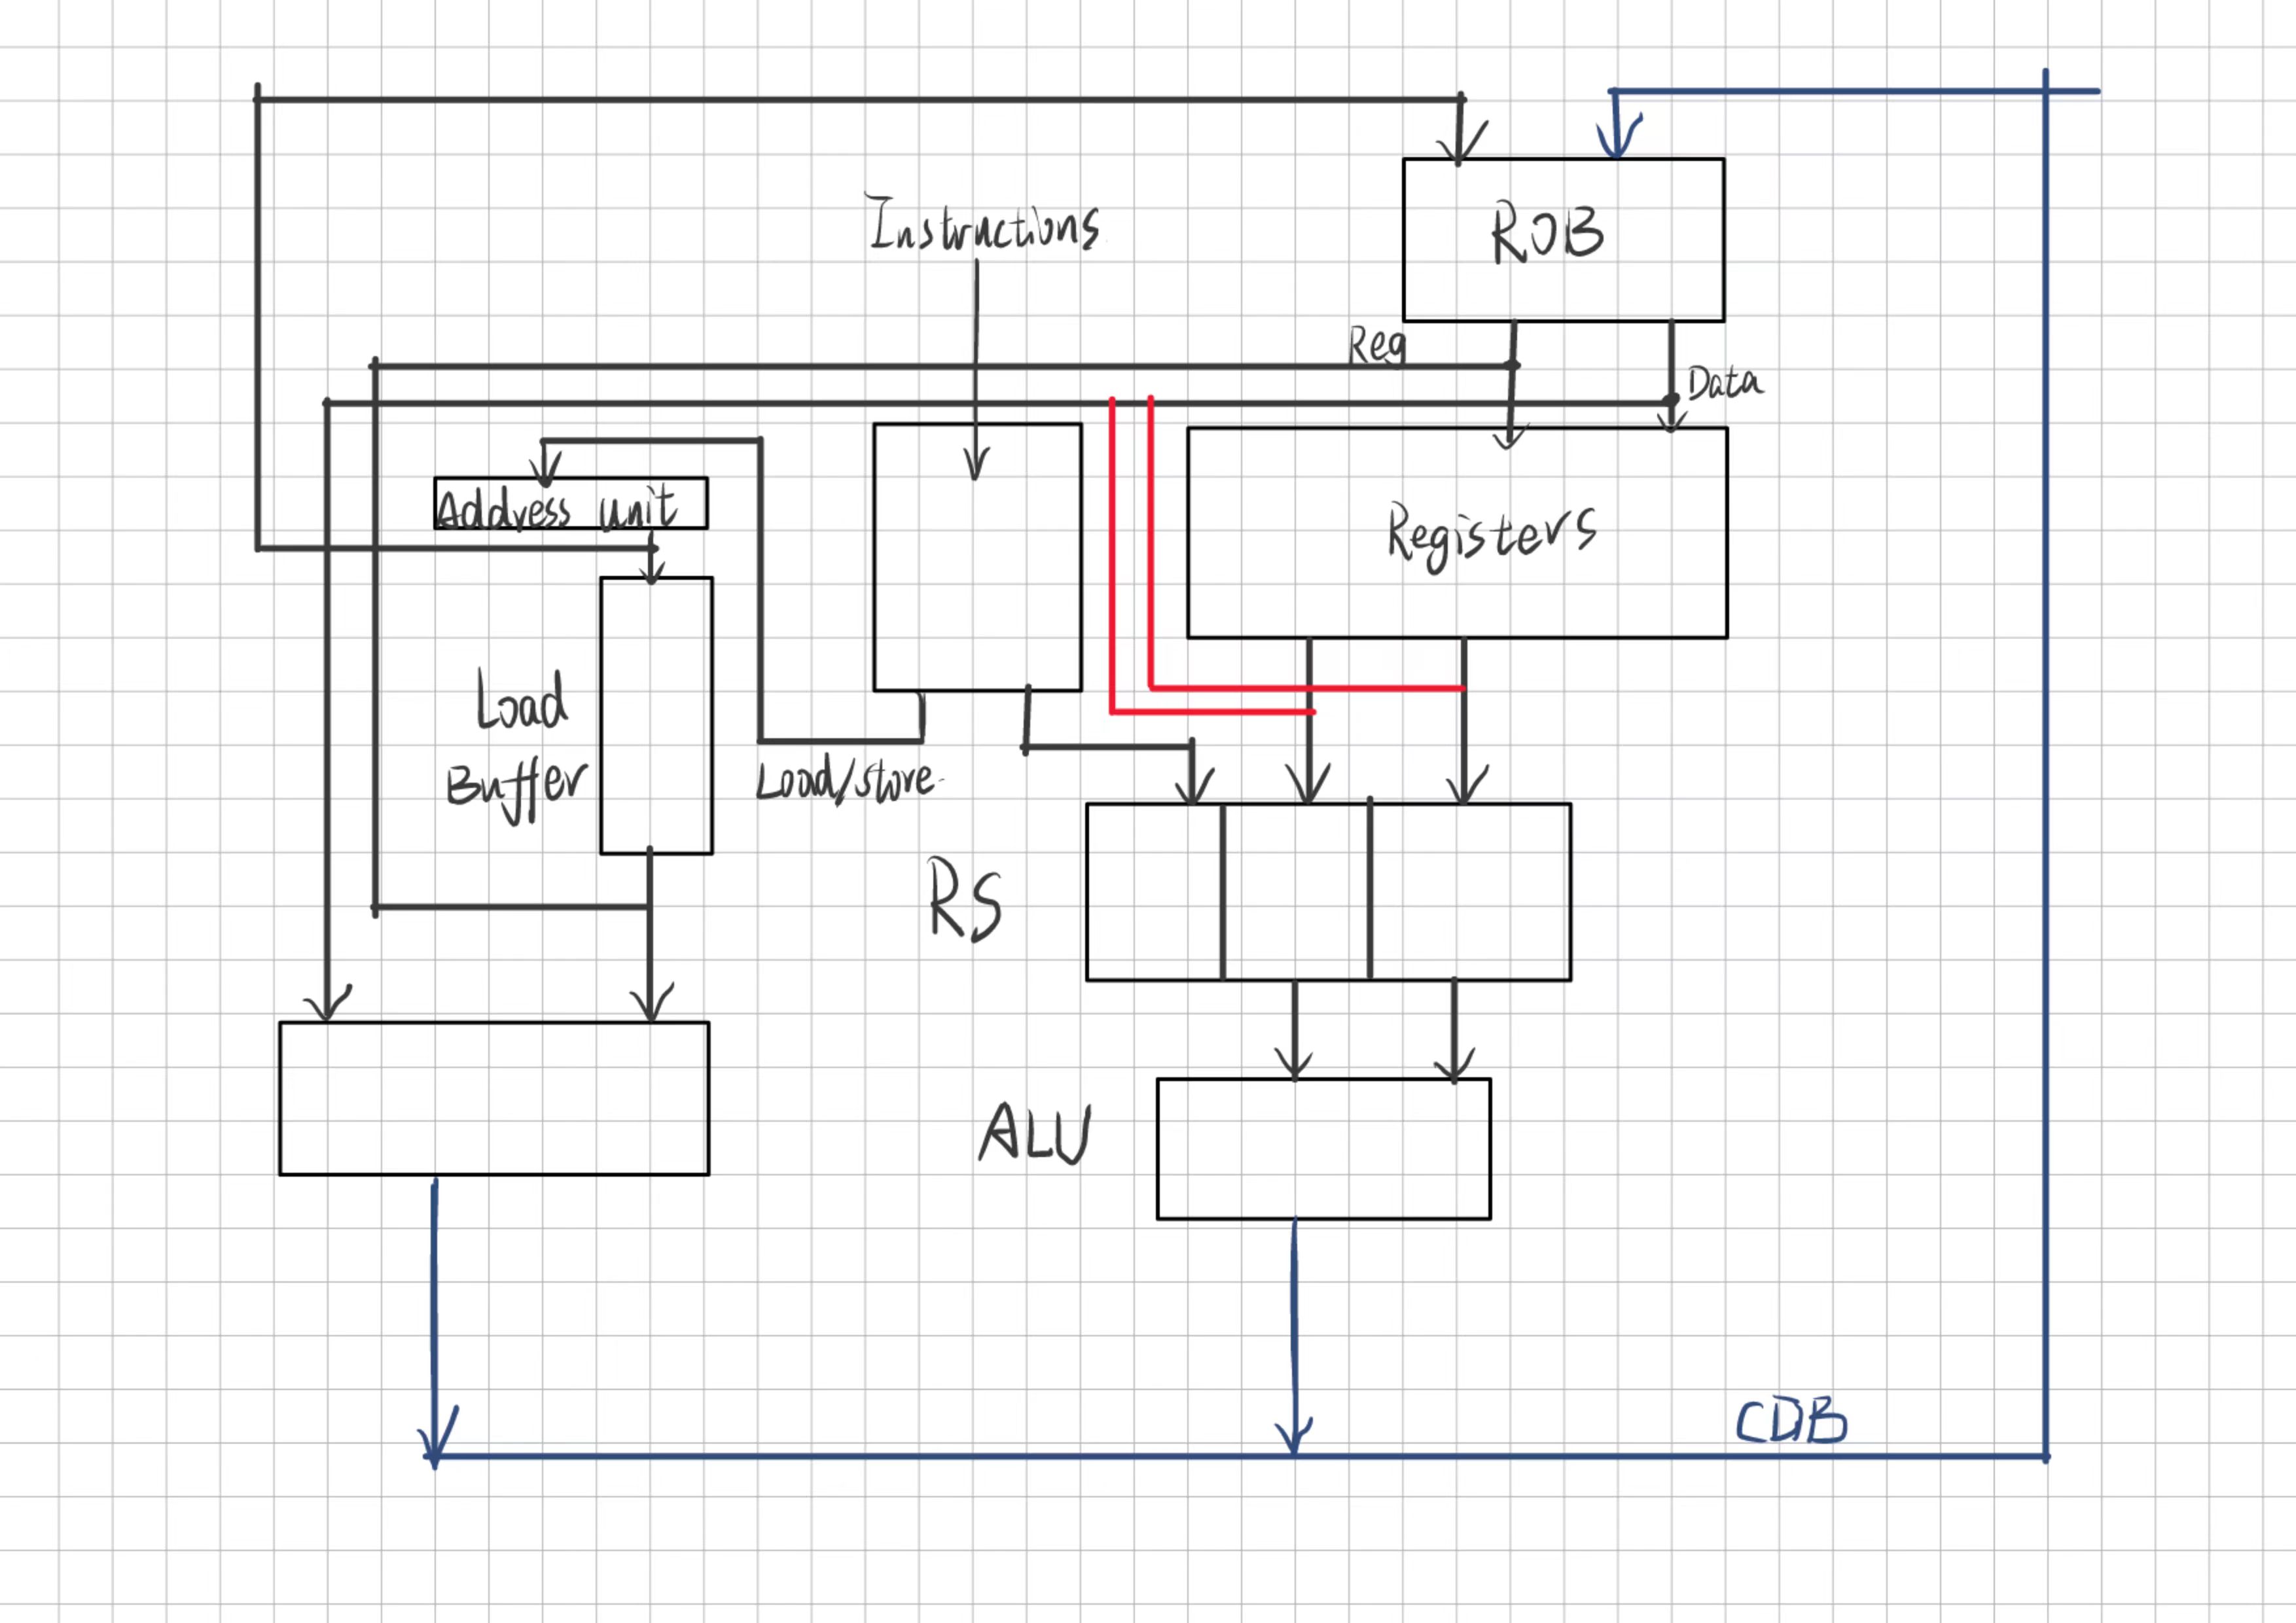 Instructions
ROB
Reg
Data
Address unit
Registers
Load
Buffer
Load/store
RS
ALU
CDB